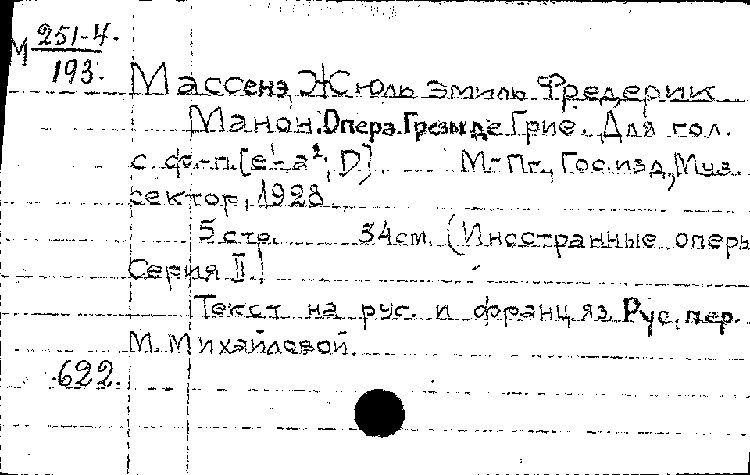 М 251-4.
193.
Массенэ, Жюль Эмиль Фредерик
Манон. Опера. Грезы де Грие. Для гол.
с ф.-п. [e¹-a²; D]. М.-Пг., Гос. изд., Муз.
сектор, 1923
5 стр. 34 см. (Иностранные оперы
Серия II.)
Текст на рус. и франц. яз. Рус. пер.
М. Михайловой.
622.